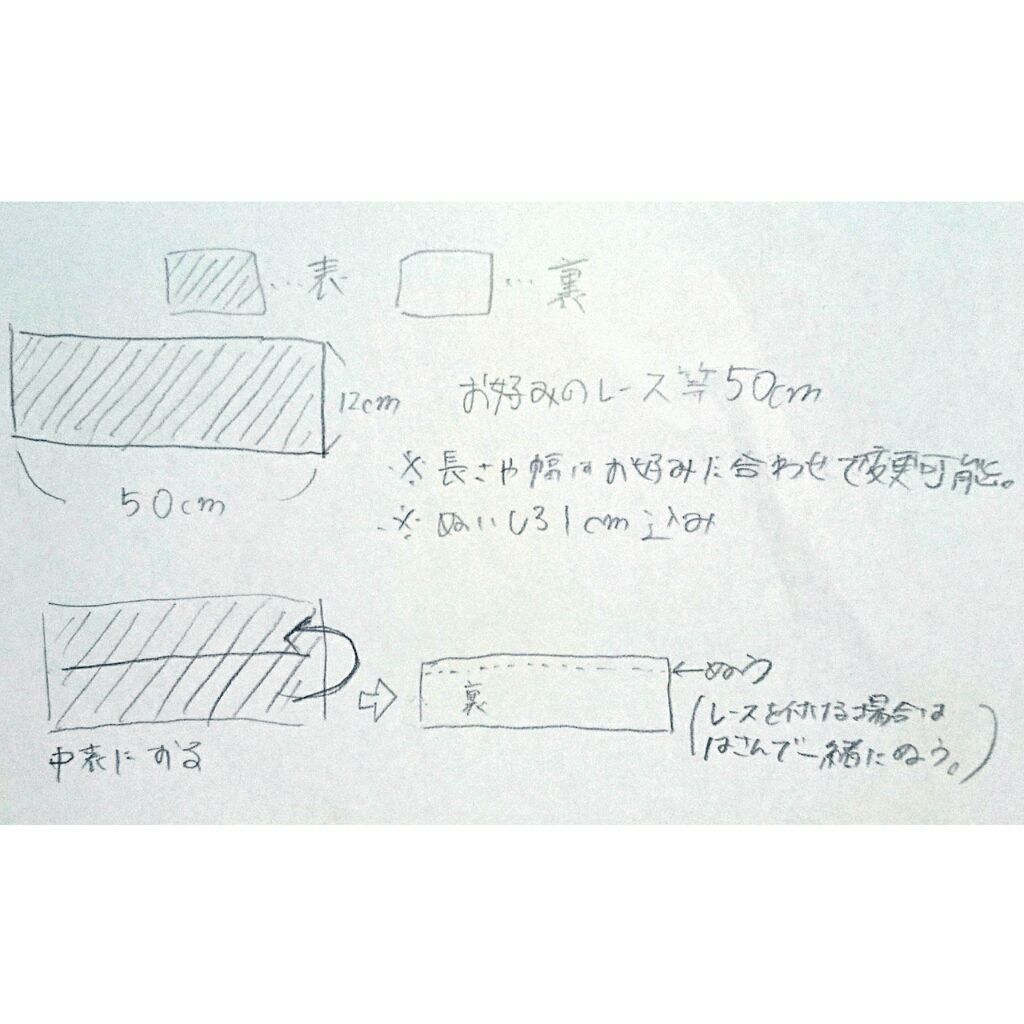 …表
…裏
12cm
お好みのレース等50cm
※長さや幅はお好みに合わせて変更可能。
50cm
※ぬいしろ1cm込み
裏
←ぬう
(レースを付ける場合は
はさんで一緒にぬう。)
中表におる